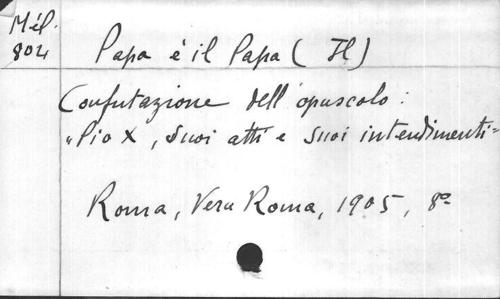 Mél.
804
Papa è il Papa (Il)
Confutazione dell'opuscolo:
"Pio X, suoi atti e suoi intendimenti"
Roma, Vera Roma, 1905, 8º